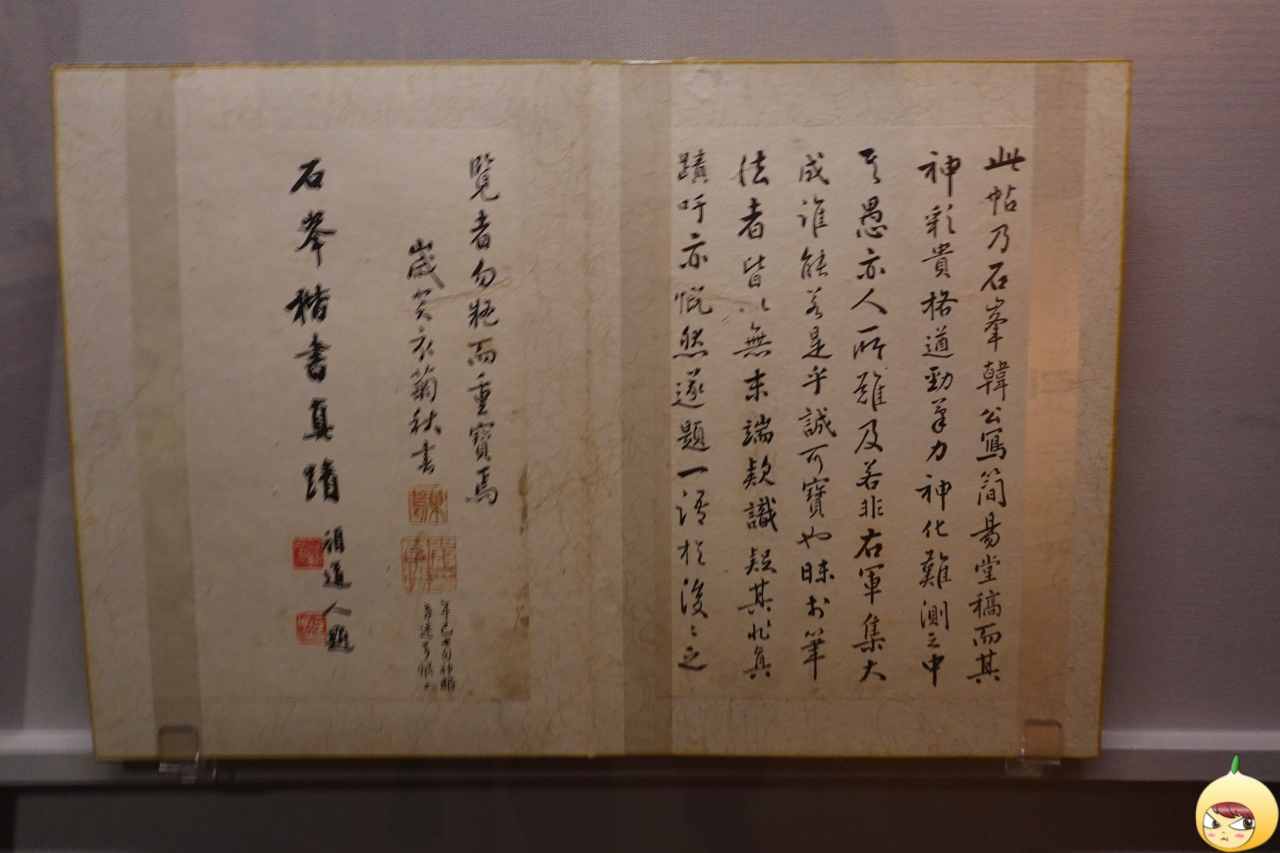 此帖乃石峯韓公寫簡易堂稿而其
神彩貴格遒勁筆力神化難測之中
其愚亦人所難及若非右軍集大
成誰能若是乎誠可寶也昧於筆
法者皆以無末端款識疑其非真
蹟吁亦慨然遂題一語於後之
覽者勿\u5fd8而重寶焉
歲癸亥菊秋書
石峯楷書真蹟
道人題